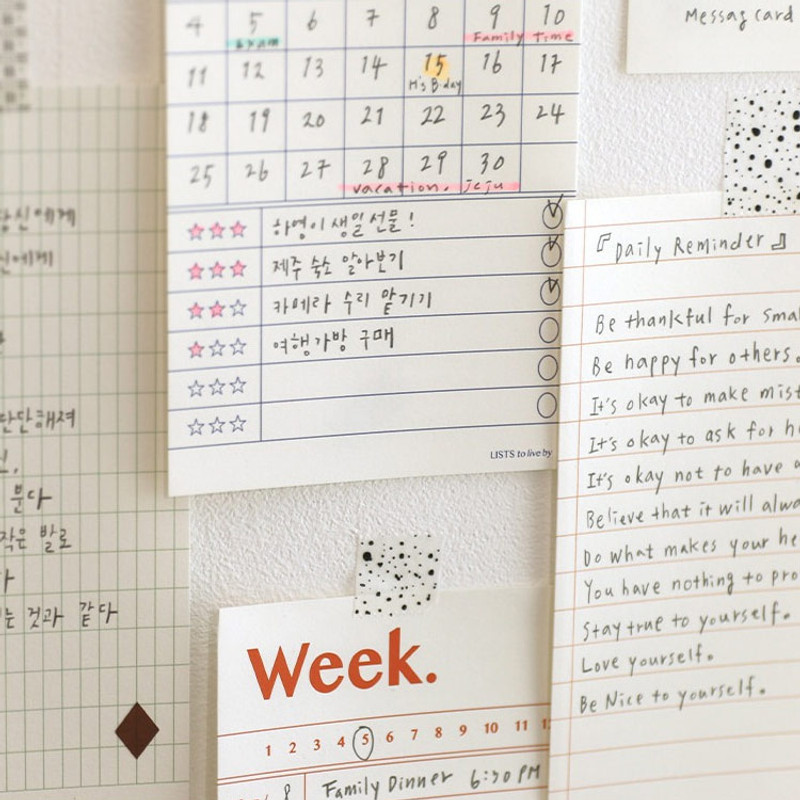 Messag card
4 5 6 7 8 9 10
exam Family Time
11 12 13 14 15 16 17
H's B-day
18 19 20 21 22 23 24
25 26 27 28 29 30
vacation. jeju
하영이 생일 선물!
제주 숙소 알아보기
카메라 수리 맡기기
여행가방 구매
LISTS to live by
당신에게
신에게
단단해져
분다
작은 발로
는 것과 같다
『Daily Reminder』
Be thankful for smal
Be happy for others.
It's okay to make mist
It's okay to ask for he
It's okay not to have a
Believe that it will alwa
Do what makes your he
You have nothing to pro
Stay true to yourself.
Love yourself.
Be Nice to yourself.
Week.
1 2 3 4 5 6 7 8 9 10 11
8 Family Dinner 6:30 PM